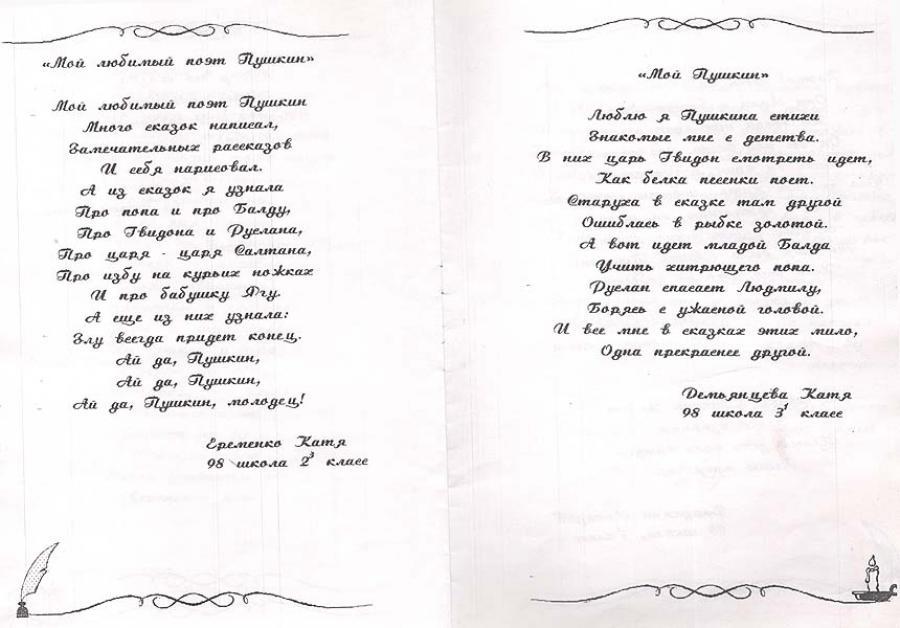 «Мой любимый поэт Пушкин»
Мой любимый поэт Пушкин
Много сказок написал,
Замечательных рассказов
И себя нарисовал.
А из сказок я узнала
Про попа и про Балду,
Про Гвидона и Руслана,
Про царя - царя Салтана,
Про избу на курьих ножках
И про бабушку Ягу.
А еще из них узнала:
Злу всегда придет конец.
Ай да, Пушкин,
Ай да, Пушкин,
Ай да, Пушкин, молодец!
Еременко Катя
98 школа 2³ класс
«Мой Пушкин»
Люблю я Пушкина стихи
Знакомые мне с детства.
В них царь Гвидон смотреть идет,
Как белка песенки поет.
Старуха в сказке там другой
Ошиблась в рыбке золотой.
А вот идет младой Балда
Учить хитрющего попа.
Руслан спасает Людмилу,
Борясь с ужасной головой.
И все мне в сказках этих мило,
Одна прекраснее другой.
Демьянцева Катя
98 школа 3¹ класс